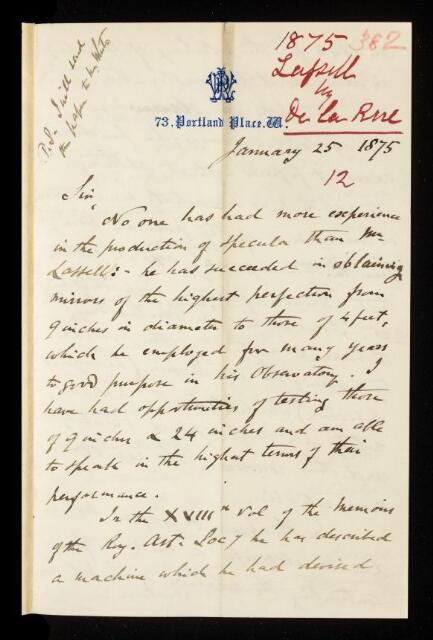 P.S. I will send
the paper to Mr White
1875 382
Lassell
by
De la Rue
73, Portland Place. W.
January 25 1875
12
Sir,
No one has had more experience
in the production of specula than Mr
Lassell:- he has succeeded in obtaining
mirrors of the highest perfection from
9 inches in diameter to those of 4 feet,
which he employed for many years
to good purpose in his Observatory. I
have had opportunities of testing those
of 9 inches & 24 inches and am able
to speak in the highest terms of their
performance.
In the XVIIIth Vol of the Memoirs
of the Roy. Ast. Socy he has described
a machine which he had devised